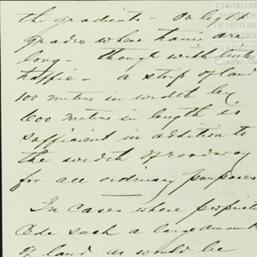 the gradients - On light
grades where trains are
long - though with little
traffic - a strip of land
100 meters in width by
600 meters in length is
sufficient in addition to
the width of roadway
for all ordinary purposes
In cases where propriet
Cede such a large amount
of land as would be
CENTRO DE
DE HISTOR